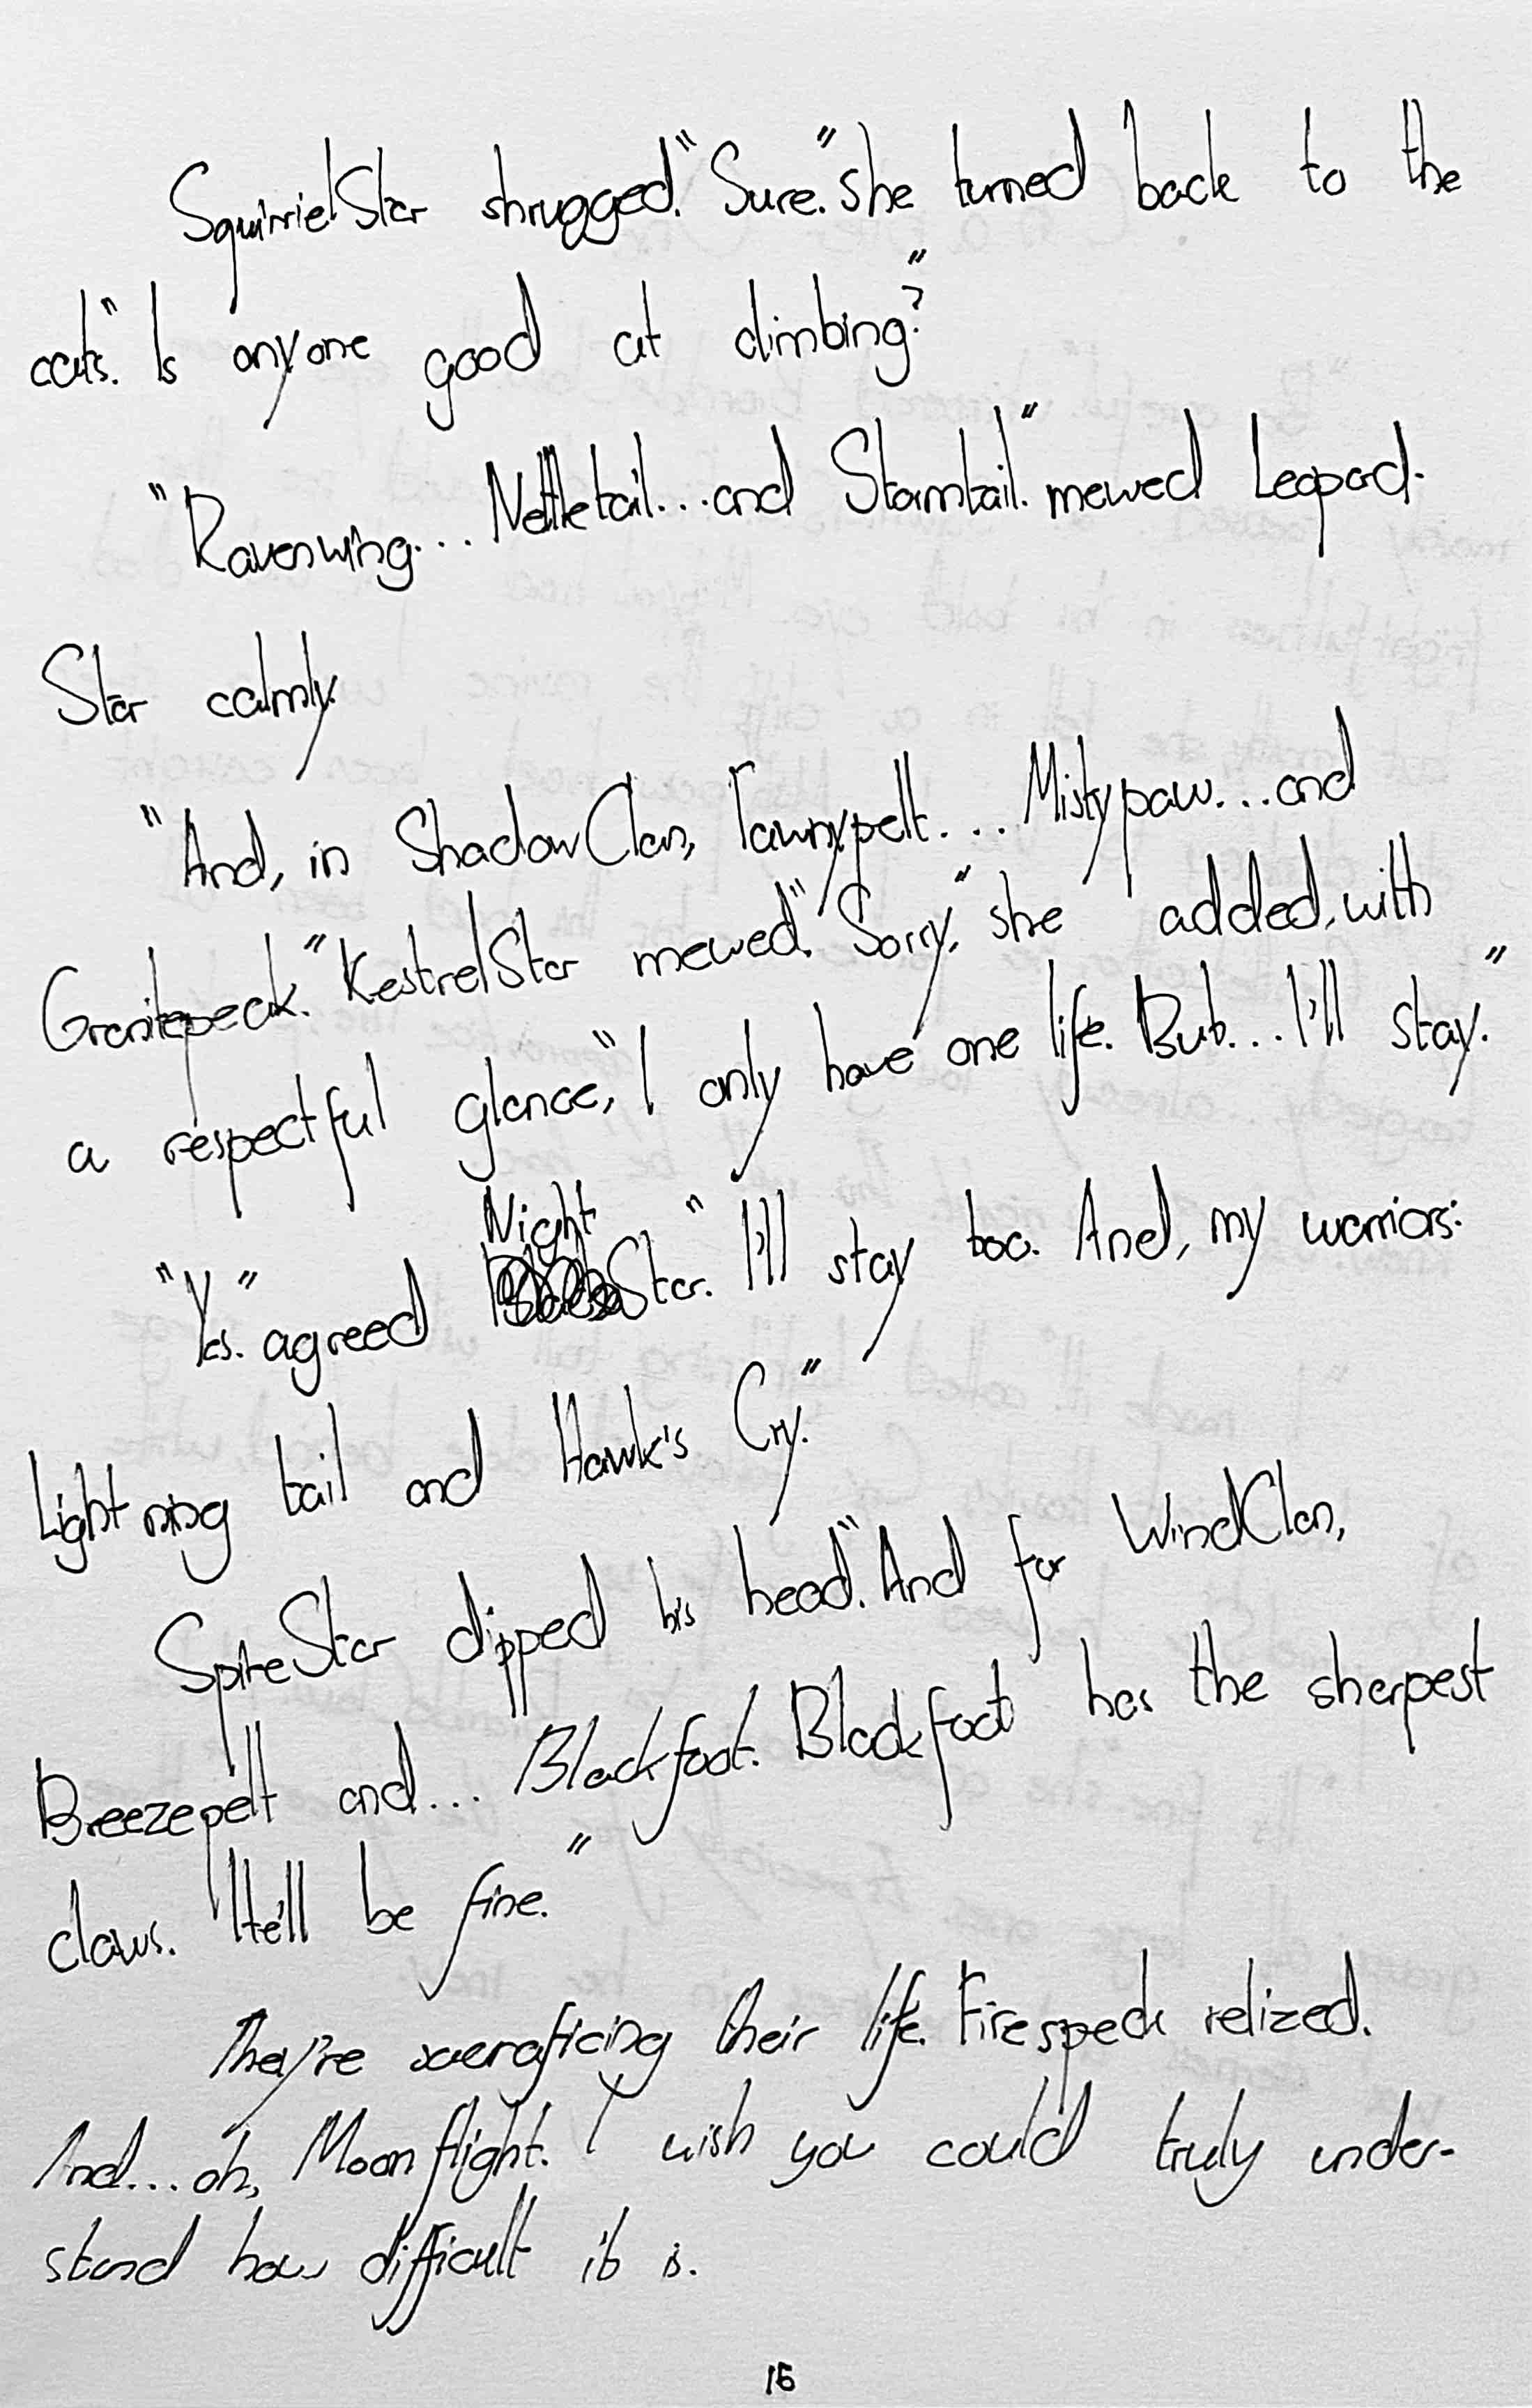 SquirrielStar shrugged. "Sure." she turned back to the
cats. "Is anyone good at climbing?"
"Ravenwing... Nettletail... and Stormtail." mewed Leopard-
Star calmly.
"And, in ShadowClan, Tawnypelt... Mistypaw... and
Granitepeak." KestrelStar mewed. "Sorry," she added, with
a respectful glance, "I only have one life. But... I'll stay."
Night
"Yes." agreed Star. "I'll stay too. And, my warriors:
Lightning tail and Hawk's Cry."
SpikeStar dipped his head. "And for WindClan,
Breezepelt and... Blackfoot. Blackfoot has the sharpest
claws. He'll be fine."
They're sacraficing their life. Firespeck relized.
And... oh, Moonflight. I wish you could truly under-
stand how difficult it is.
15